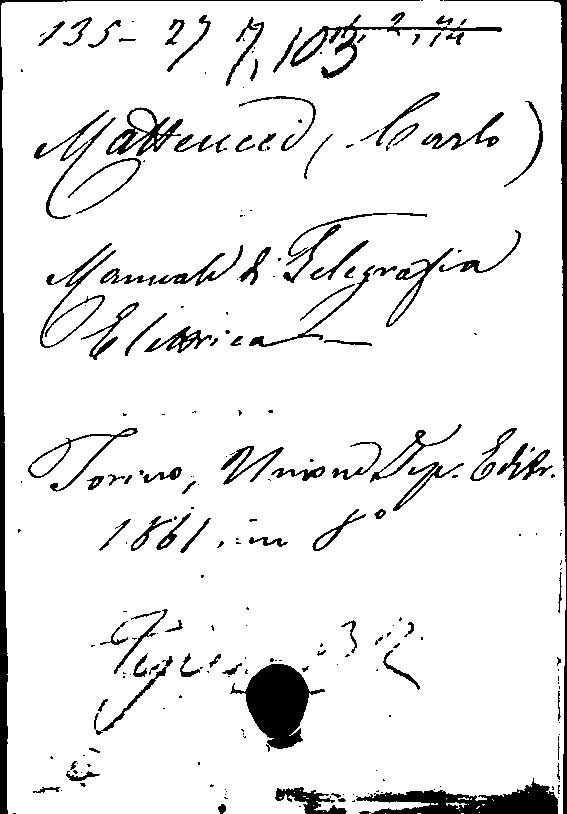 135-27 7,103
Matteucci (Carlo)
Manuale di Telegrafia
Elettrica
Torino, Unione Tip. Editr.
1861. in 8º